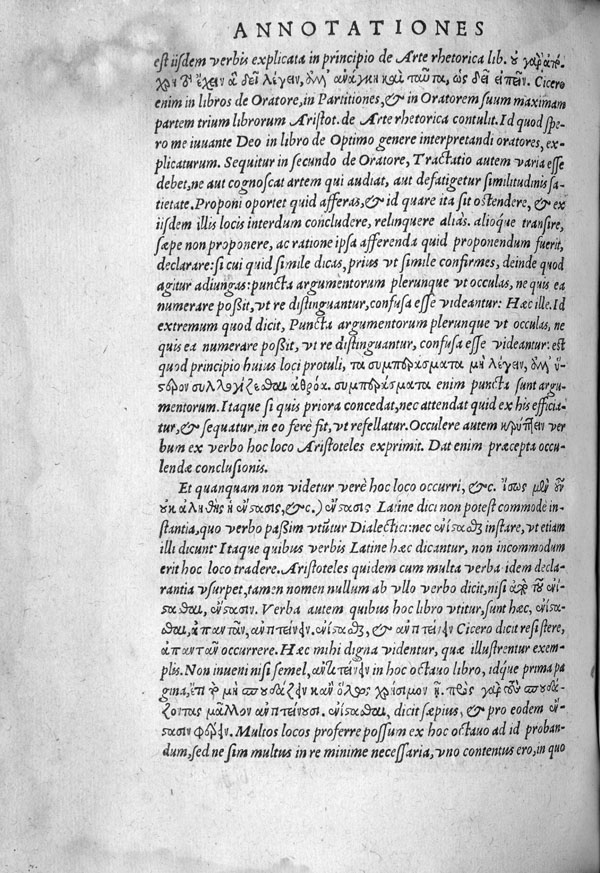 ANNOTATIONES
est iisdem verbis explicata in principio de Arte rhetorica lib. οὐ γὰρ ἀπόχρη
τὸ ἔχειν ἃ δεῖ λέγειν, ἀλλ' ἀνάγκη καὶ ταῦτα, ὡς δεῖ εἰπεῖν. Cicero
enim in libros de Oratore, in Partitiones, & in Oratorem suum maximam
partem trium librorum Aristot. de Arte rhetorica contulit. Id quod spe-
ro me iuuante Deo in libro de Optimo genere interpretandi oratores, ex-
plicaturum. Sequitur in secundo de Oratore, Tractatio autem varia esse
debet, ne aut cognoscat artem qui audiat, aut defatigetur similitudnis sa-
tietate. Proponi oportet quid afferas, & id quare ita sit ostendere, & ex
iisdem illis locis interdum concludere, relinquere aliàs. alioque transire,
sæpe non proponere, ac ratione ipsa afferenda quid proponendum fuerit,
declarare: si cui quid simile dicas, prius vt simile confirmes, deinde quod
agitur adiungas: puncta argumentorum plerunque vt occulas, ne quis ea
numerare poßit, vt re distinguantur, confusa esse videantur: Hæc ille. Id
extremum quod dicit, Puncta argumentorum plerunque vt occulas, ne
quis ea numerare poßit, vt re distinguantur, confusa esse videantur: est
quod principio huius loci protuli, τὰ συμπεράσματα μὴ λέγειν, ἀλλ' ὕ-
στερον συλλογίζεσθαι ἀθρόα. συμπεράσματα enim puncta sunt argu-
mentorum. Itaque si quis priora concedat, nec attendat quid ex his efficia-
tur, & sequatur, in eo ferè fit, vt refellatur. Occulere autem κρύπτειν ver
bum ex verbo hoc loco Aristoteles exprimit. Dat enim præcepta occu-
lendæ conclusionis.
Et quanquam non videtur verè hoc loco occurri, &c. ἴσως μὲν οὖν
οὐκ ἀληθὴς ἡ ἔνστασις, &c.) ἔνστασις Latine dici non potest commode in-
stantia, quo verbo paßim vtũtur Dialectici: nec ἐνίστασθαι instare, vt etiam
illi dicunt. Itaque quibus verbis Latine hæc dicantur, non incommodum
erit hoc loco tradere. Aristoteles quidem cum multa verba idem decla-
rantia vsurpet, tamen nomen nullum ab vllo verbo dicit, nisi ἀπὸ τοῦ ἐνί-
στασθαι, ἔνστασιν. Verba autem quibus hoc libro vtitur, sunt hæc, ἐνίστα-
σθαι, ἀπαντᾶν, ἀντιτείνειν, ἐνίστασθαι, & ἀντιτείνειν Cicero dicit resistere,
ἀπαντᾶν occurrere. Hæc mihi digna videntur, quæ illustrentur exem-
plis. Non inueni nisi semel, ἀντιτείνειν in hoc octauo libro, idque prima pa
gina, ἔτι τῷ μὴ σπουδάζειν κἂν ὅλως χρήσιμον ᾖ. πρὸς γὰρ τοὺς σπουδά-
ζοντας μᾶλλον ἀντιτείνουσι. ἐνίστασθαι, dicit sæpius, & pro eodem ἔν-
στασιν φέρειν. Multos locos proferre possum ex hoc octauo ad id proban-
dum, sed ne sim multus in re minime necessaria, vno contentus ero, in quo